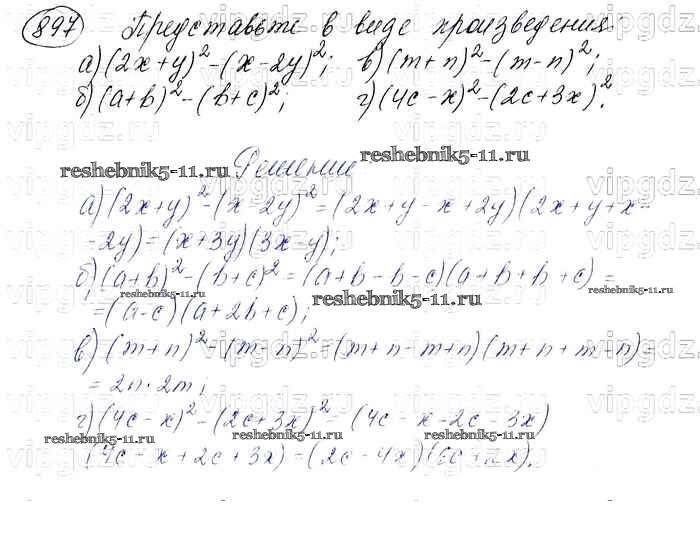 897 Представьте в виде произведения:
а) (2x+y)²-(x-2y)²; в) (m+n)²-(m-n)²;
б) (a+b)²-(b+c)²; г) (4c-x)²-(2c+3x)².
Решение
reshebnik5-11.ru reshebnik5-11.ru
а) (2x+y)²-(x-2y)²=(2x+y-x+2y)(2x+y+x-
-2y)=(x+3y)(3x-y);
б) (a+b)²-(b+c)²=(a+b-b-c)(a+b+b+c)=
reshebnik5-11.ru reshebnik5-11.ru reshebnik5-11.ru
=(a-c)(a+2b+c);
в) (m+n)²-(m-n)²=(m+n-m+n)(m+n+m-n)=
=2n·2m;
г) (4c-x)²-(2c+3x)²=(4c-x-2c-3x)
reshebnik5-11.ru reshebnik5-11.ru reshebnik5-11.ru
(4c-x+2c+3x)=(2c-4x)(6c+2x).
vipgdz